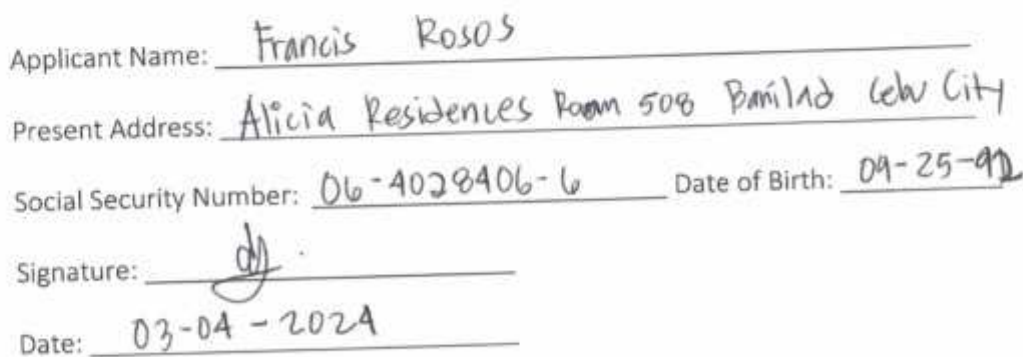 Applicant Name: Francis Rosos
Present Address: Alicia Residences Room 508 Banilad Cebu City
Social Security Number: 06-4028406-6 Date of Birth: 09-25-92
Signature:
Date: 03-04-2024